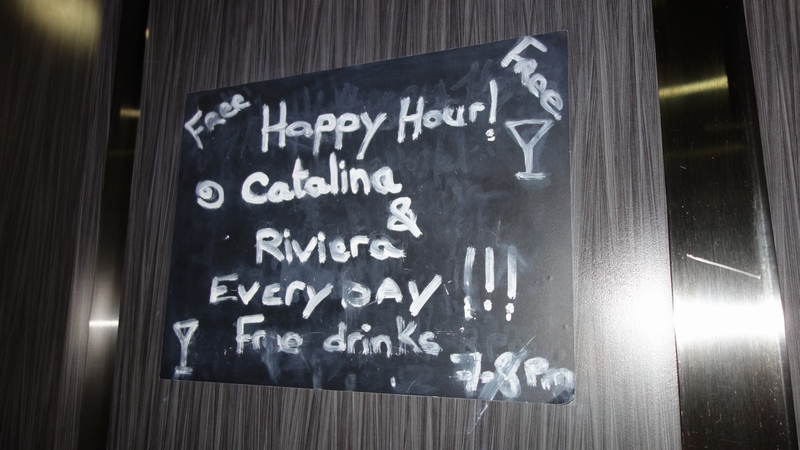 Free
Free
Happy Hour!
@ Catalina
&
Riviera
EVERY DAY !!!
Free drinks
7-8 Pm